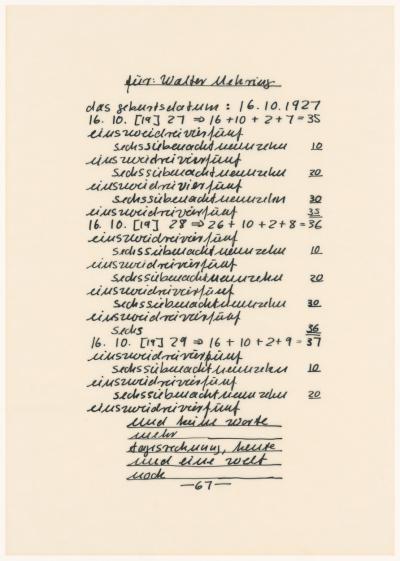 für: Walter Mehring
das geburtsdatum : 16.10.1927
16. 10. [19] 27 ⇒ 16 + 10 + 2 + 7 = 35
einszweidreivierfünf
sechssiebenachtneunzehn 10
einszweidreivierfünf
sechssiebenachtneunzehn 20
einszweidreivierfünf
sechssiebenachtneunzehn 30
einszweidreivierfünf 35
16. 10. [19] 28 ⇒ 26 + 10 + 2 + 8 = 36
einszweidreivierfünf
sechssiebenachtneunzehn 10
einszweidreivierfünf
sechssiebenachtneunzehn 20
einszweidreivierfünf
sechssiebenachtneunzehn 30
einszweidreivierfünf
sechs 36
16. 10. [19] 29 ⇒ 16 + 10 + 2 + 9 = 37
einszweidreivierfünf
sechssiebenachtneunzehn 10
einszweidreivierfünf
sechssiebenachtneunzehn 20
einszweidreivierfünf
und keine worte
mehr
tagsrechnung, heute
und eine welt
noch
—67—